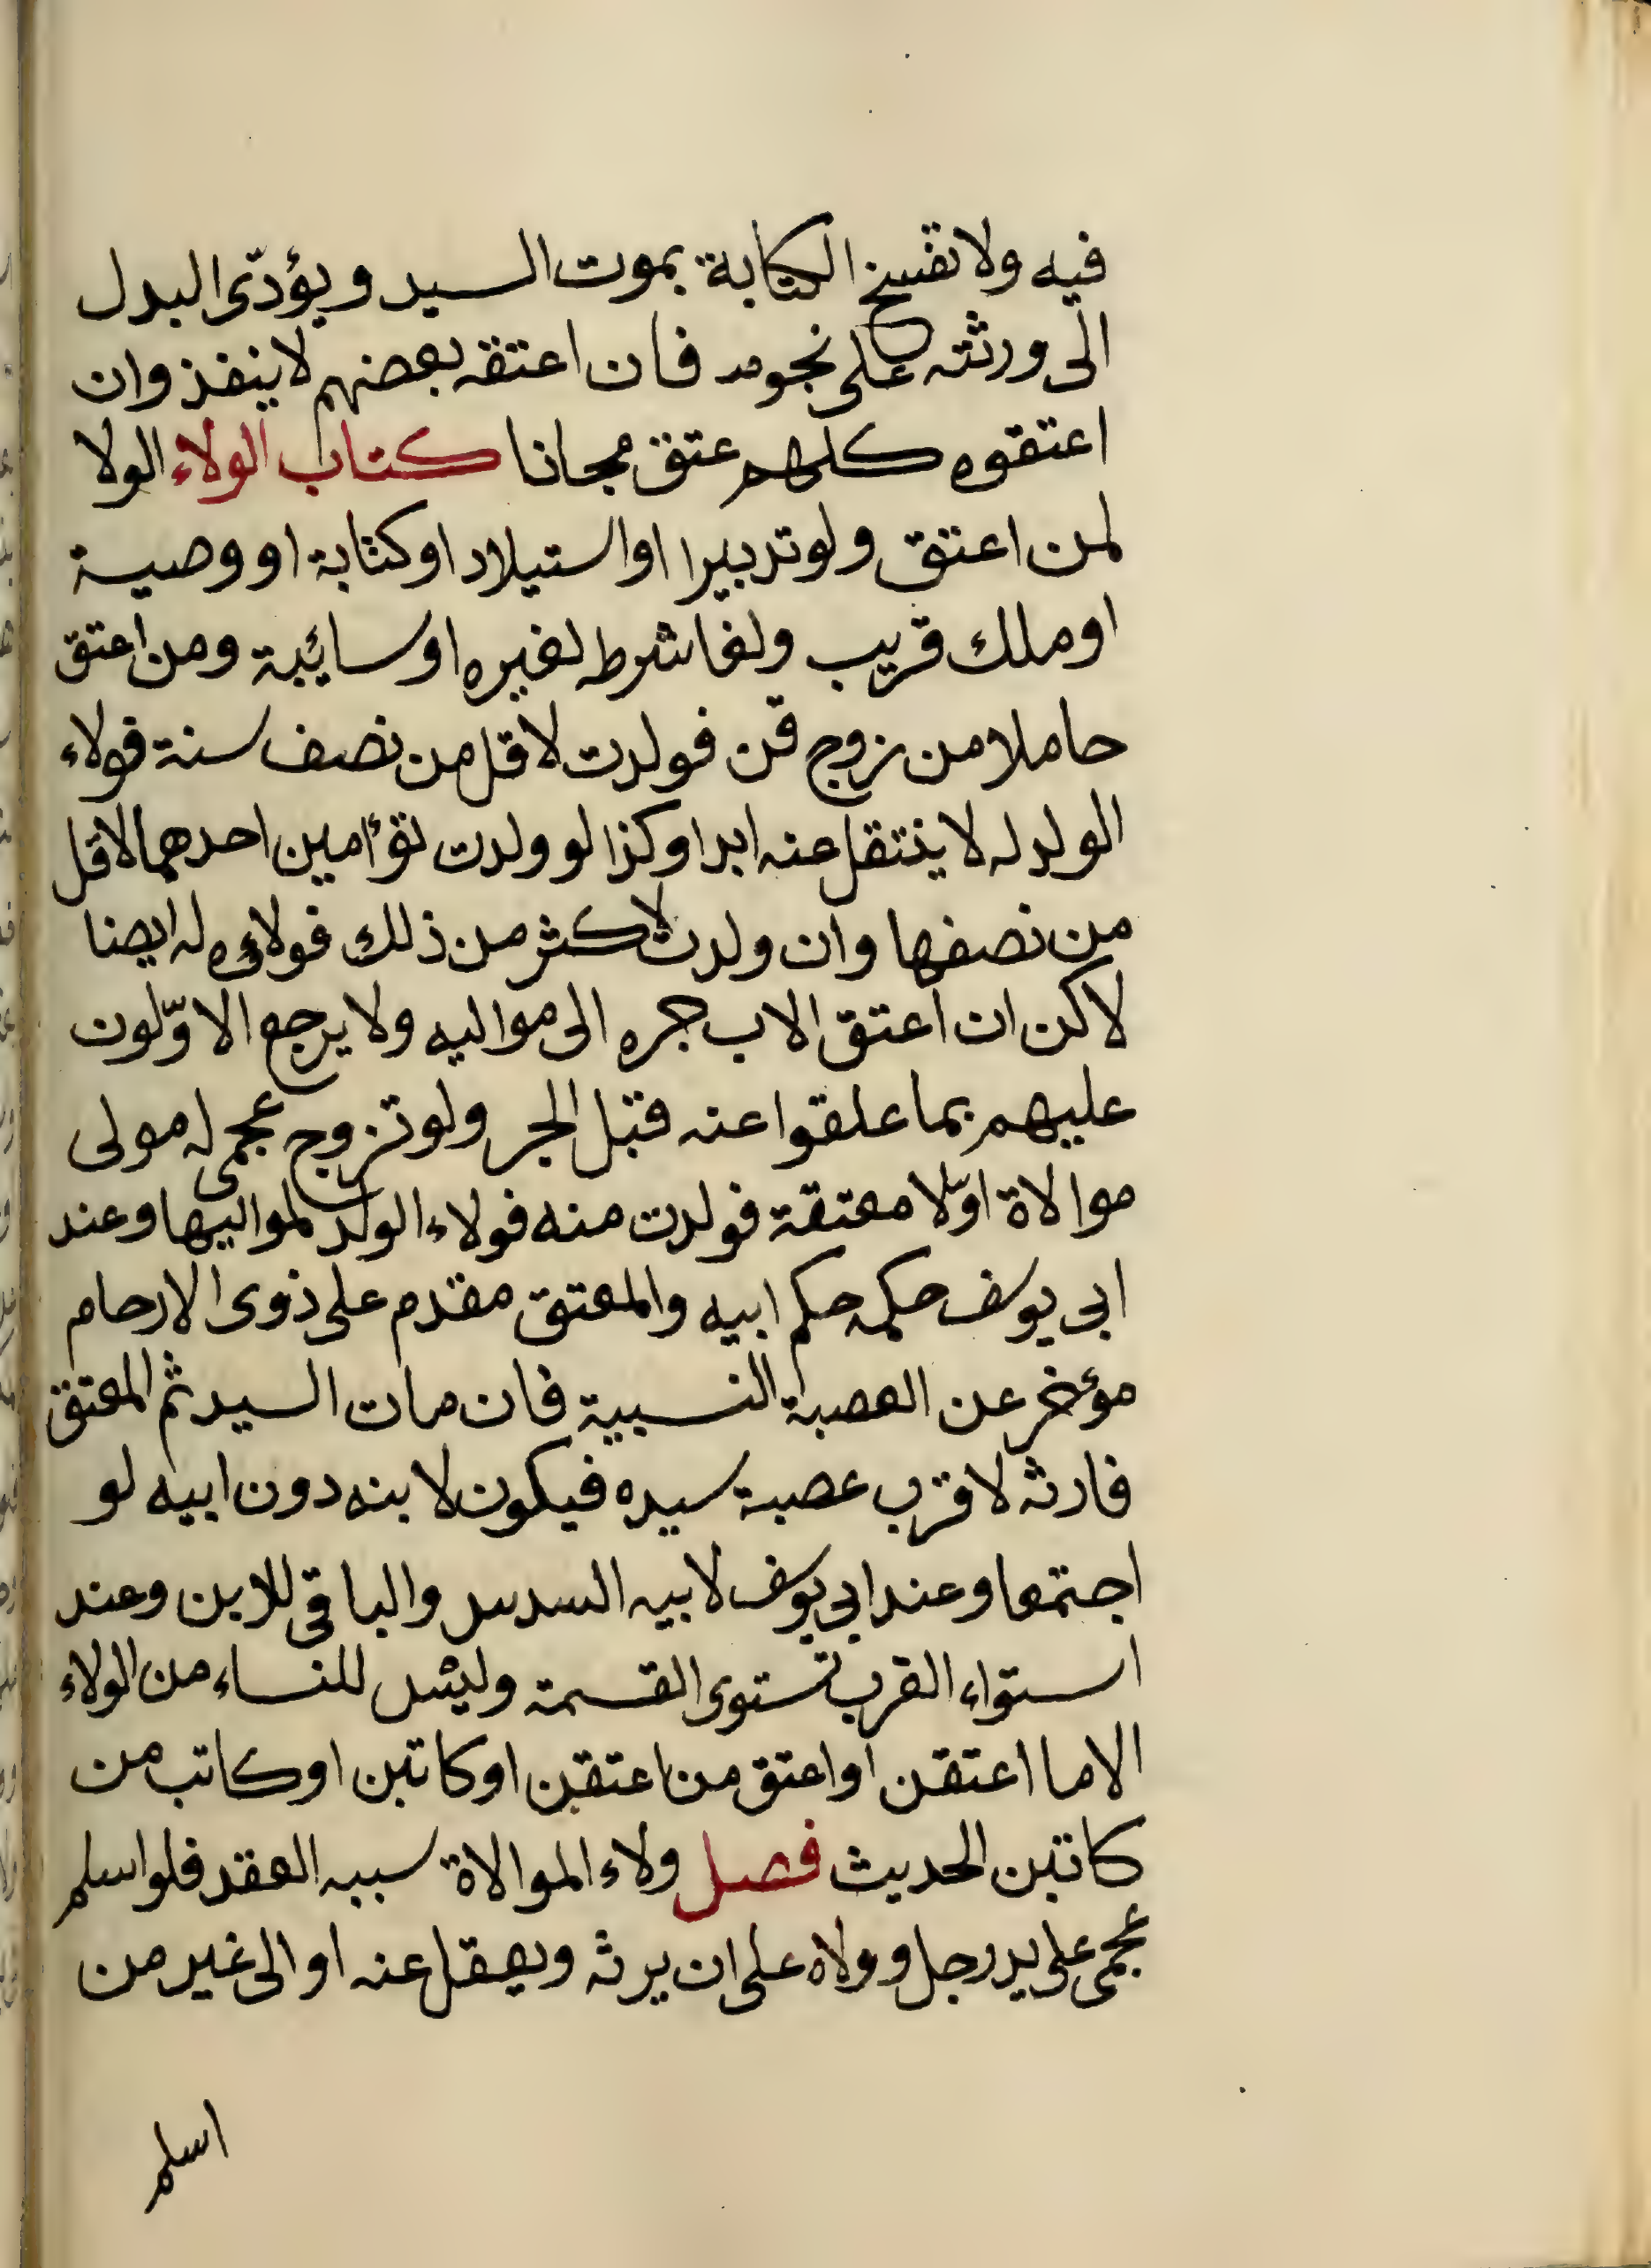 فيه ولا تفسخ الكتابة بموت السيد ويؤدّى البدل
الى ورثته على نجومه فان اعتقه بعضهم لا ينفذ وان
اعتقوه كلهم عتق مجانا كتاب الولاء الولا
لمن اعتق ولو تدبيرا او استيلاد او كتابة او وصية
او ملك قريب ولغا شرطه لغيره او سائبة ومن اعتق
حاملا من زوج قن فولدت لاقل من نصف سنة فولاء
الولد له لا ينتقل عنه ابدا وكذا لو ولدت توأمين احدهما لاقل
من نصفها وان ولدت لاكثر من ذلك فولاؤه له ايضا
لاكن ان اعتق الاب جره الى مواليه ولا يرجع الاوّلون
عليهم بما علقوا عنه قبل الجر ولو تزوج عجمى له مولى
موالاة اوّلا معتقة فولدت منه فولاء الولد لمواليها وعند
ابى يوسف حكمه حكم ابيه والمعتق مقدم على ذوى الارحام
مؤخر عن العصبة النسبية فان مات السيد ثم المعتق
فارثه لاقرب عصبة سيده فيكون لابنه دون ابيه لو
اجتمعا وعند ابى يوسف لابيه السدس والباقى للابن وعند
استواء القرب تستوى القسمة وليس للنساء من الولاء
الا ما اعتقن او اعتق من اعتقن او كاتبن او كاتب من
كاتبن الحديث فصل ولاء الموالاة سببه العقد فلو اسلم
عجمى على يد رجل وولاه على ان يرثه ويعقل عنه او الى غير من
اسلم